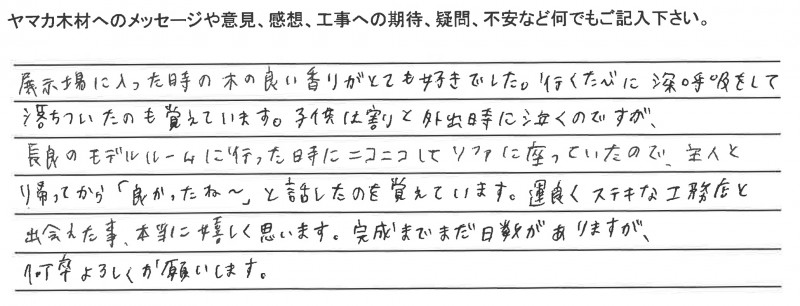 ヤマカ木材へのメッセージや意見、感想、工事への期待、疑問、不安など何でもご記入下さい。
展示場に入った時の木の良い香りがとても好きでした。行くたびに深呼吸をして
落ちついたのも覚えています。子供は割りと外出時に泣くのですが、
長良のモデルルームに行った日時にニコニコしてソファに座っていたので、主人と
帰ってから「良かったね〜」と話したのを覚えています。運良くステキな工務店と
出会えた事、本当に嬉しく思います。完成までまだ日数がありますが、
何卒よろしくお願いします。